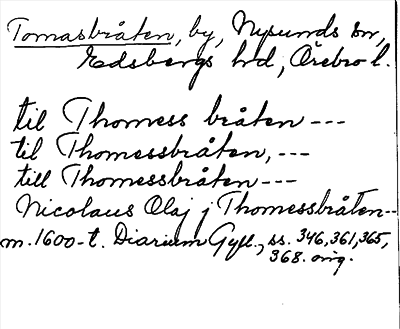 Tomasbråten, by, Nysunds sn,
Edsbergs hd, Örebro l.
til Thomess bråten ---
til Thomessbråten, ---
till Thomessbråten ---
Nicolaus Olaj j Thomessbråten--
m. 1600-t. Diarium Gyll., ss. 346, 361, 365,
368. orig.